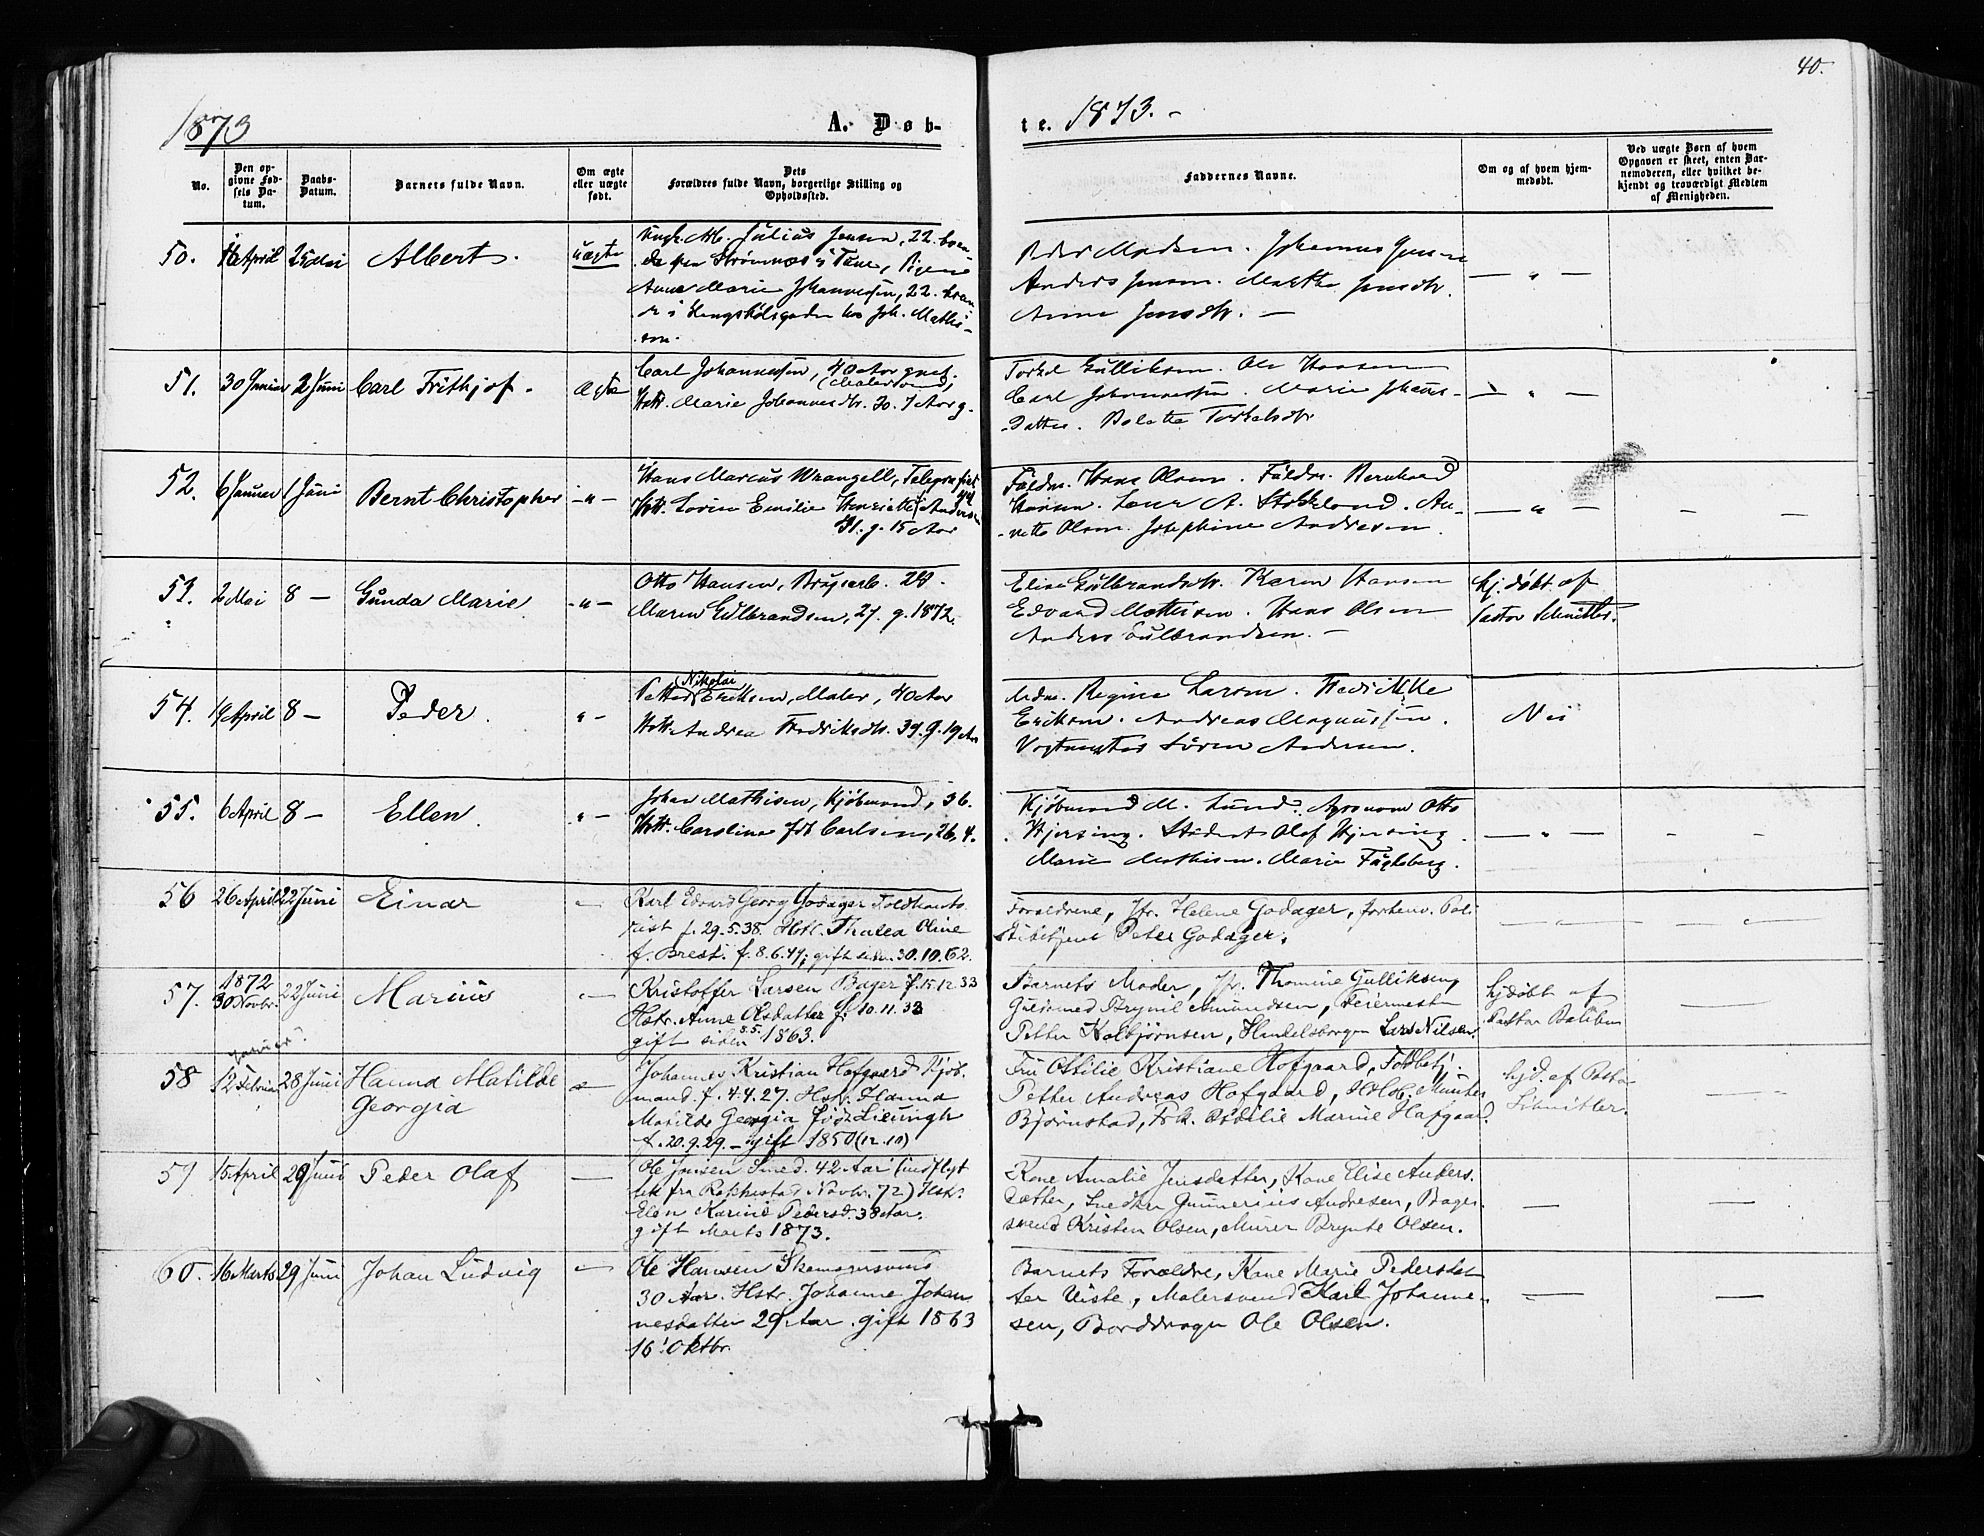 40.
1873
A. Døb-
te. 1873. -
No.
Den op-
givne Fød-
sels Da-
tum.
Daabs-
Datum.
Barnets fulde Navn.
Om ægte
eller uægte
født.
Dets
Forældres fulde Navn, borgerlige Stilling og
Opholdssted.
Faddernes Navne.
Om og af hvem hjem-
medøbt.
Ved uægte Børn af hvem
Opgaven er skeet, enten Bar-
nemoderen, eller hvilket be-
kjendt og troværdigt Medlem
af Menigheden.
50. 16 April 25 Mai Albert. uægte
Julius Jensen, 22.
Strømnæs i Tune, Pigen
Anne Marie Johannessen, 22.
i hos Joh. Mathi-
sen.
Peder Madsen. Johannes Jensen
Anders Jensen. Marthe Jensdtr.
Anne Jensdtr. —
— " —
51. 30 Januar 2 Juni Carl Frithjof. ægte
Carl Johannessen, 40 Aar
(Malersvend)
Hstr. Marie Johannesdtr. 30. 7 Aar g.
Torkel Gulliksen. Ole Hansen
Carl Johannessen. Marie Johans-
datter. Bolette Torkelsdtr
— " —
52. 6 Januar 1 Juni Bernt Christopher -"-
Hans Marcus Wrangell, Telegrafist
44
Hstr. Lovise Emilie Henriette Andersen
31. g. 15 Aar
Fuldm. Hans Olsen. Fuldm. Bernhard
Hansen. A. Stokland. An-
nette Olsen. Josephine Andresen.
— " — - —
53. 2 Mai 8 — Gunda Marie -"-
Otto Hansen, 28.
Maren Gulbrandsen, 27. g. 1872.
Elise Gulbrandsdtr. Karen Hansen
Edvard Mathisen. Hans Olsen
Anders Gulbrandsen. —
hj. døbt af
Pastor Schnitler.
54. 19 April 8 — Peder. " -
Nikolai
Petter Eriksen, Maler, 40 Aar
Hstr. Andrea Fredriksdtr. 39. g. 19 Aar
Mdm. Regine Larsen. Fredrikke
Eriksen. Andreas Magnussen.
Søren Andersen.
Nei
55. 6 April 8 — Ellen. " -
Johan Mathisen, Kjøbmand, 36.
Hstr. Caroline fdt Carlsen, 26. 4.
Kjøbmand M. Lund. Agronom Otto
Hjersing. Student Olaf Hjersing
Marie Mathisen. Marie Fuglsberg.
— " — - —
56 26 April 22 Juni Einar —
Karl Edvard Georg Godager Toldkonto-
rist f. 29.5.38. Hstr. Thalea Oline
f. Brest. f. 8.6.41; gift siden 30.10.62.
Forældrene, Jfr. Helene Godager, forhenv. Poli-
tibetjent Peter Godager.
57. 1872
30 Novbr. 22 Juni Marius —
Kristoffer Larsen Bager f. 15.12.33
Hstr. Anne Olsdatter f. 10.11.33
gift siden 5.5. 1863.
Barnets Moder, Jfr. Thomine Gulliksen,
Brynil Amundsen, Feiermester
Petter Kolbjørnsen, Handelsborger Lars Nilsen.
hjdøbt af
Pastor Balchen
Januar?
58 12 Februar 28 Juni Hanna Matilde
Georgia —
Johannes Kristian Hofgaard Kjøb-
mand. f. 4.4.27. Hstr. Hanna
Matilde Georgia født Lieungh
f. 20.9.29. — gift 1850 (12.10)
Fru Ottilie Kristiane Hofgaard, Toldbetj.
Petter Andreas Hofgaard,
Bjørnstad, Frk. Ottilie Marine Hofgaard.
hjd. af Pastor
Schnitler.
59 15 April 29 Juni Peder Olaf —
Ole Jensen Smed. 42 Aar (indflyt-
tet fra Rakkestad Novbr. 72) Hstr.
Elen Karine Pedersd. 38 Aar.
gift Marts 1873.
Kone Amalie Jensdatter, Kone Elise Anders-
datter, Snedker Gunnerius Andresen, Bager-
svend Kristen Olsen, Murer Brynte Olsen.
60. 16 Marts 29 Juni Johan Ludvig —
Ole Hansen
30 Aar. Hstr. Johanne Johan-
nesdatter 29 Aar. gift 1863
16 Oktbr.
Barnets Forældre, Kone Marie Pedersdat-
ter Viste, Malersvend Karl Johanne-
sen, Borddrager Ole Olsen.